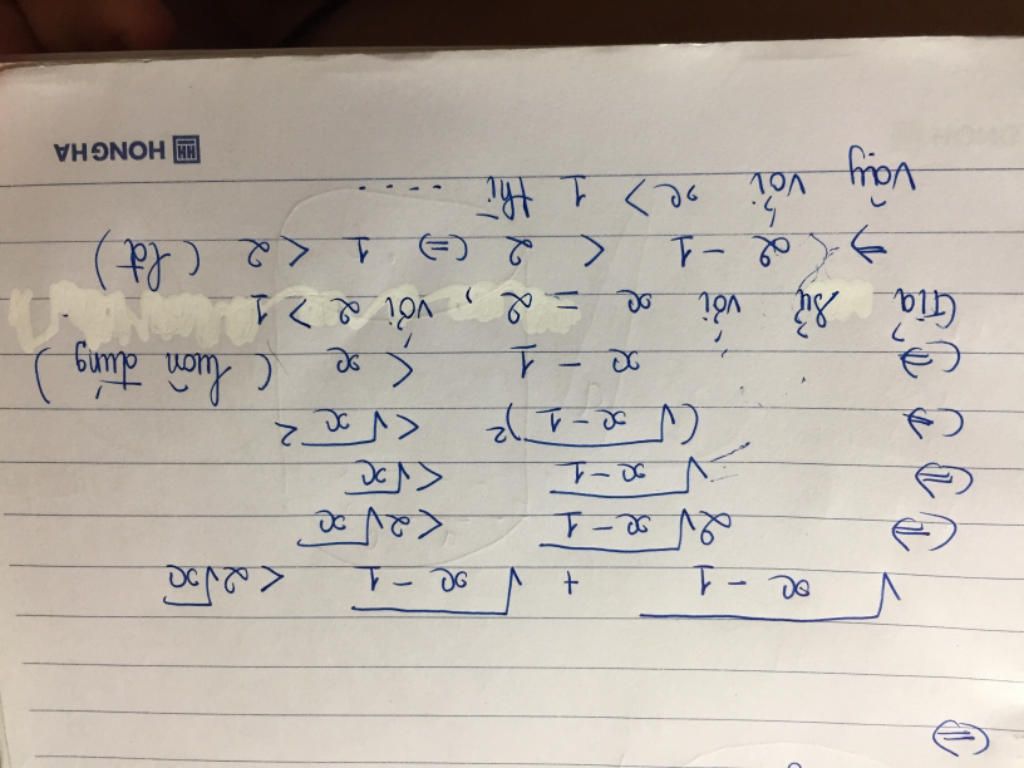 (=)
√(x - 1) + √(x - 1) < 2√x
(=) 2√(x - 1) < 2√x
(=) √(x - 1) < √x
(=) (√(x - 1))² < √x²
(=) x - 1 < x (luôn đúng)
Giả sử với x = 2, với 2 > 1
=> 2 - 1 < 2 (=) 1 < 2 (lđ)
Vậy với x > 1 thì ....
HH HONG HA